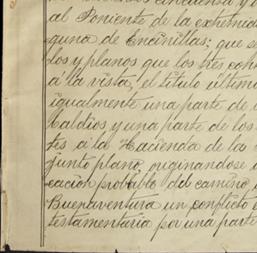 al Poniente de la extremid
guna de Encinillas; que se
los y planos que los tres
á la vista, el título último
igualmente una parte de
baldios y una parte de los
tes á la Hacienda de la
junto plano, originandose
cación probable del camino
Buenaventura un conflicto
testamentaria por una parte